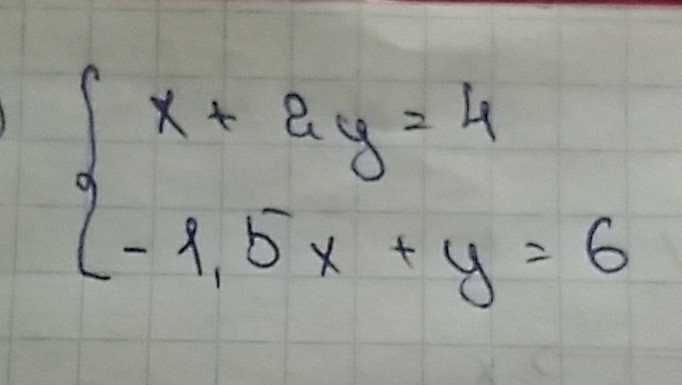 x + 2y = 4
-1,5x + y = 6